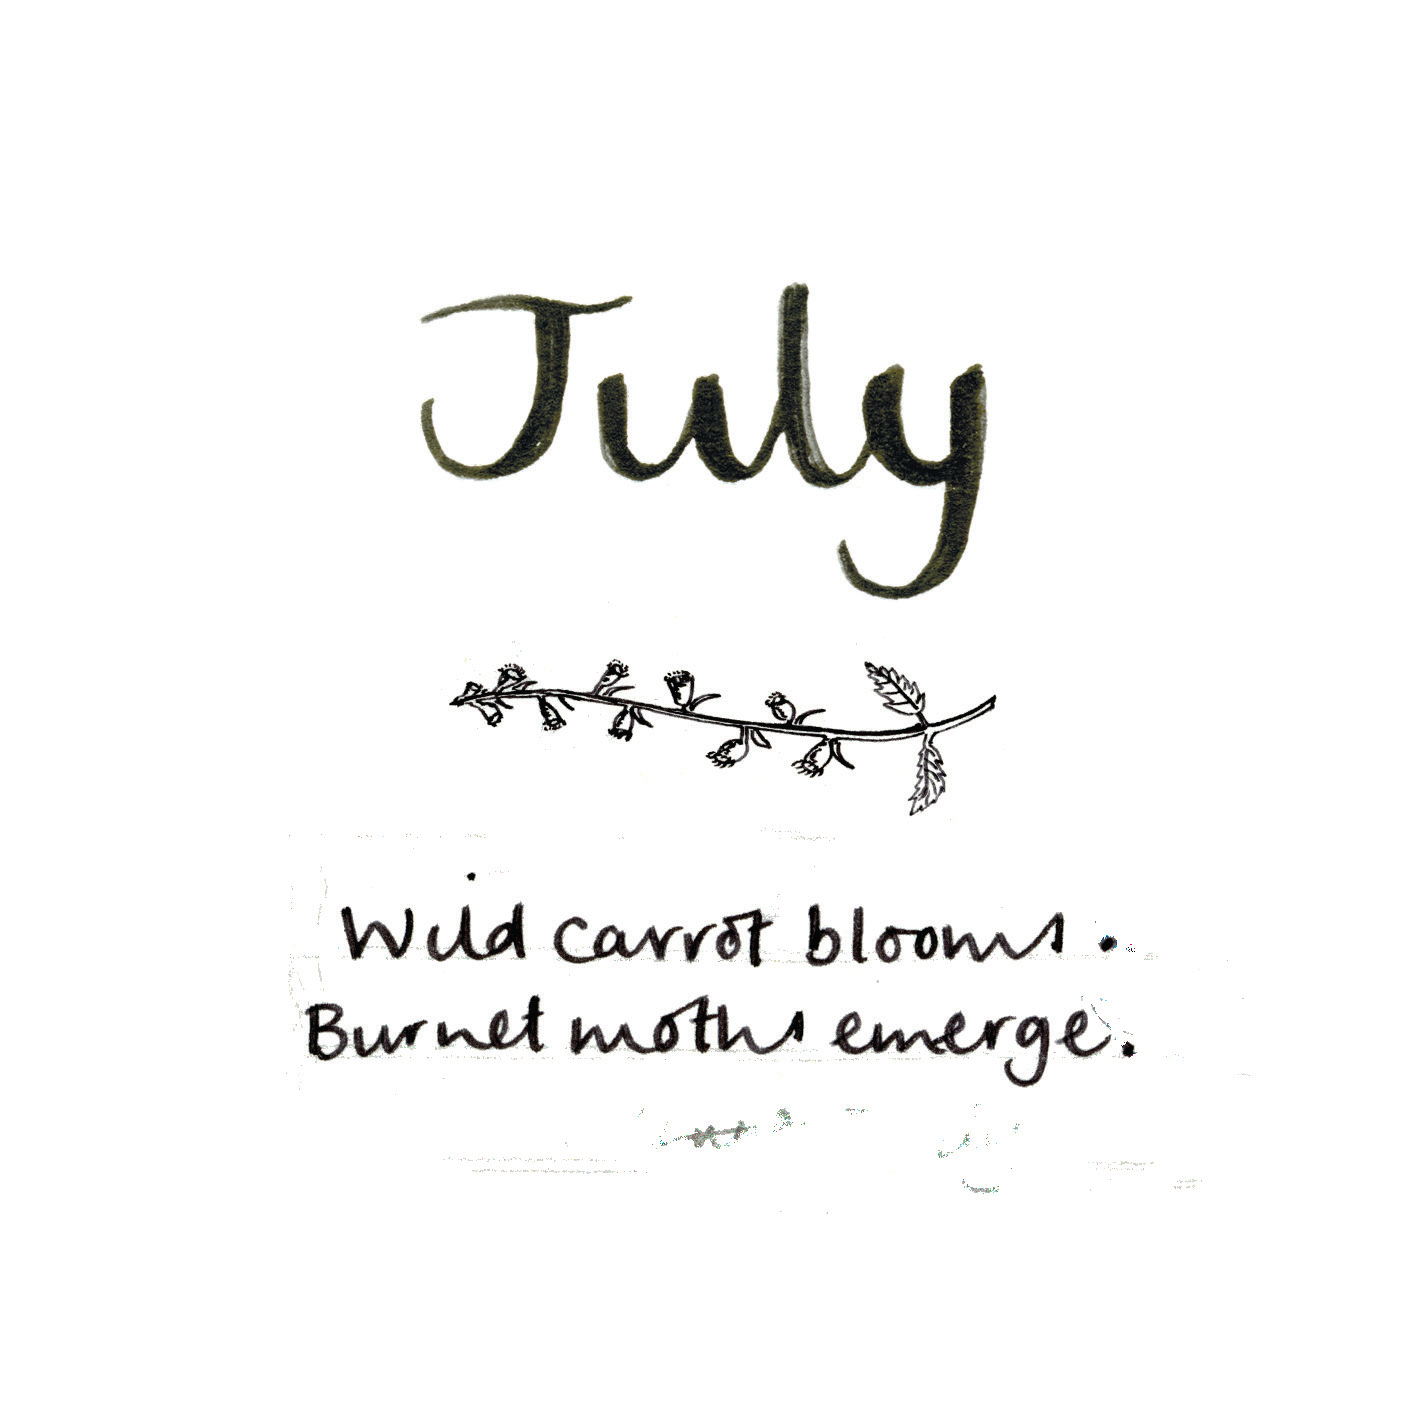 July
Wild carrot blooms.
Burnet moths emerge.